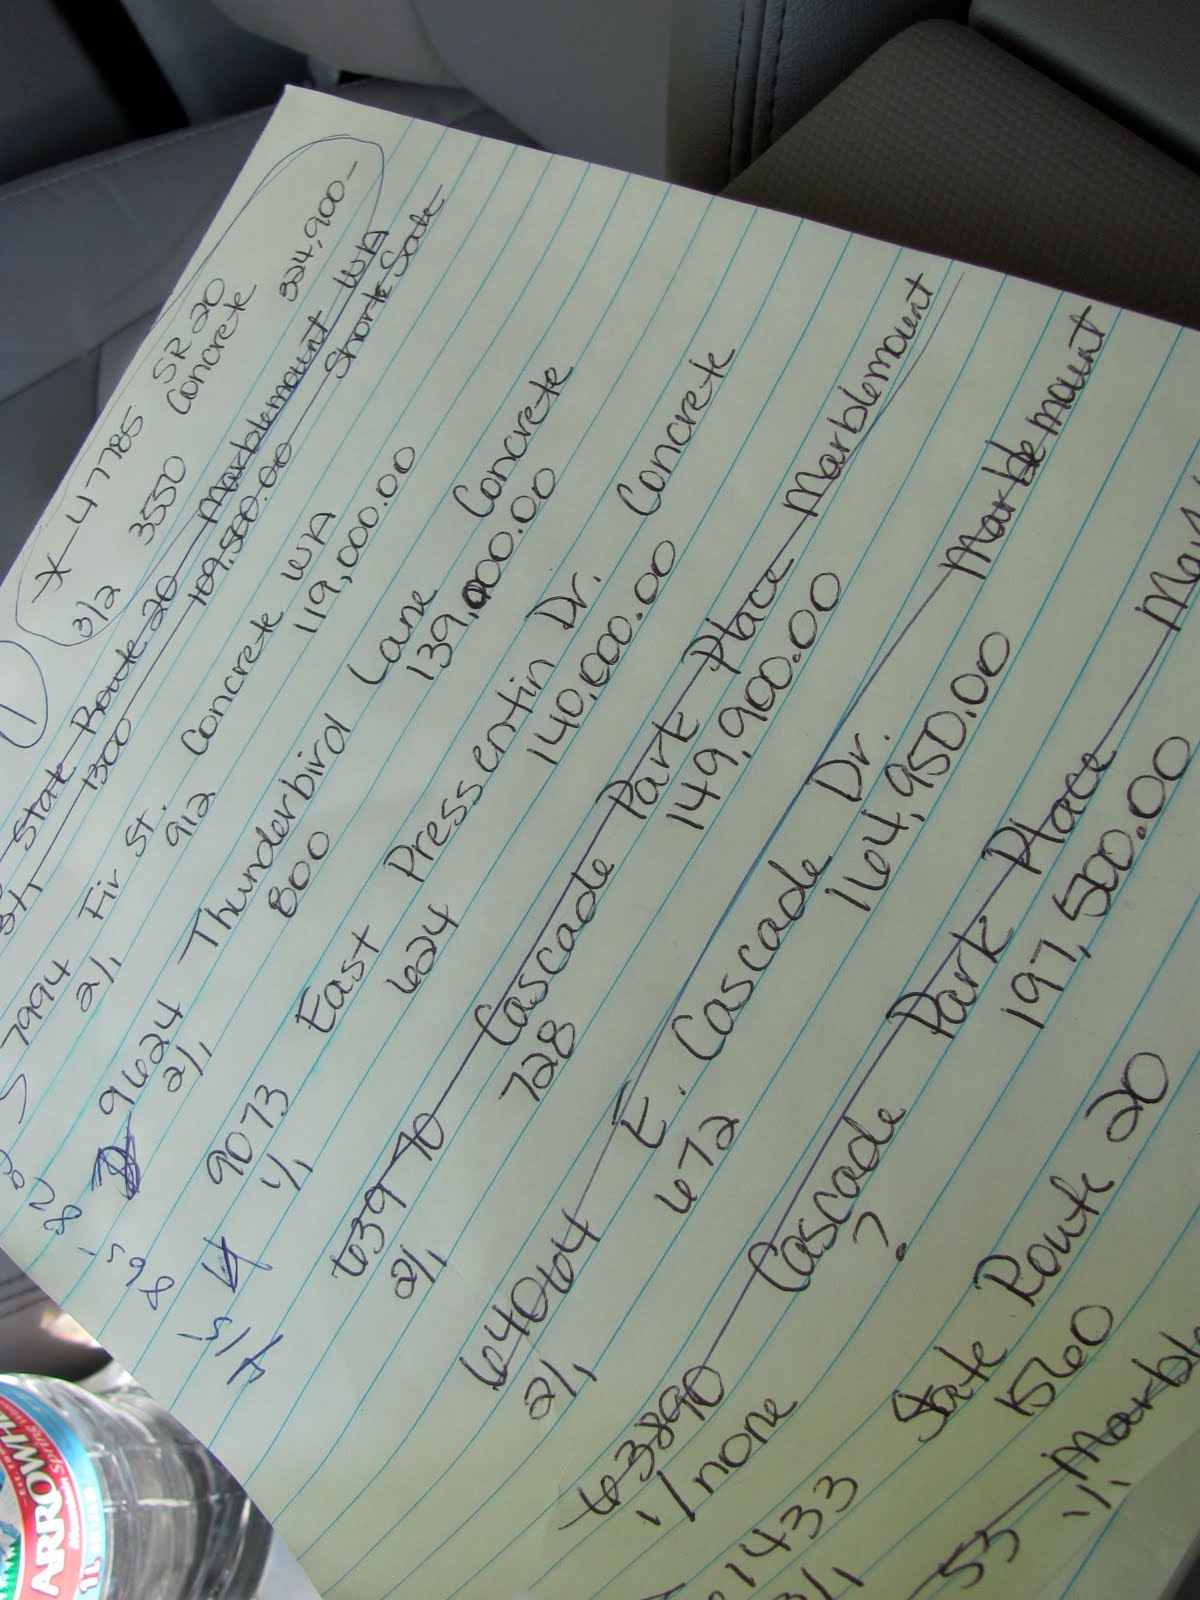 1
* 47785 SR 20
3/2 3550 Concrete 324,900-
State Route 20 Marblemount WA
3/1 1300 109,500.00 Short Sale
7994 Fir St. Concrete WA
2/1 912 119,000.00
9624 Thunderbird Lane Concrete
2/1 800 139,000.00
9073 East Pressentin Dr. Concrete
1/1 624 140,000.00
63970 Cascade Park Place Marblemount
2/1 728 149,900.00
64064 E. Cascade Dr. Marblemount
2/1 672 164,950.00
63890 Cascade Park Place
1/none ? 197,500.00
1433 State Route 20
3/1 1560
53
1/1
ARROWHE
Mountain Spring
1L